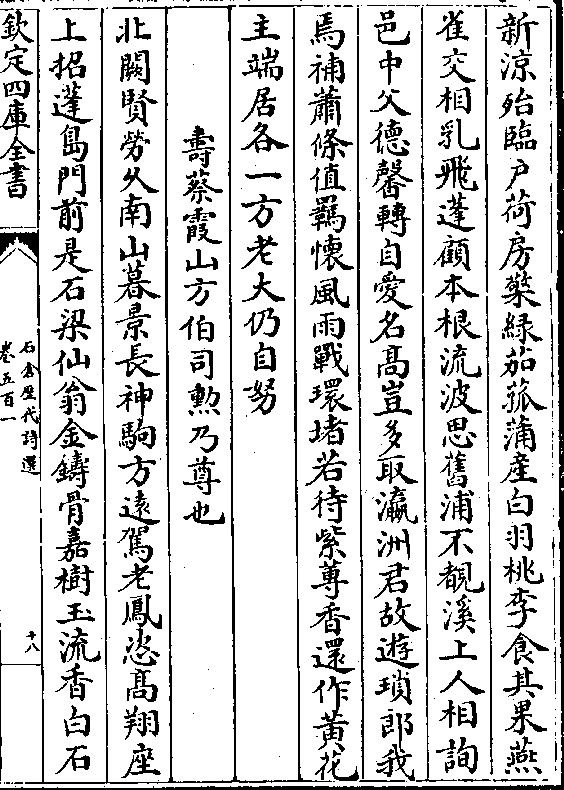 新涼殆臨戶荷房櫱緑茄菰蒲産白羽桃李食其果燕
雀交相乳飛蓬顧本根流波思舊浦不覩溪上人相詢
邑中父德馨轉自愛名髙豈多取瀛洲君故遊瑣郎我
焉補蕭條值羈懷風雨戰環堵若待紫蓴香還作黄花
主端居各一方老大仍自努
壽蔡霞山方伯司勲乃尊也
北闕賢勞乆南山暮景長神駒方遠駕老鳳恣髙翔座
上招蓬島門前是石梁仙翁金鑄骨嘉樹玉流香白石
欽定四庫全書
石倉歴代詩選
卷五百一
十八